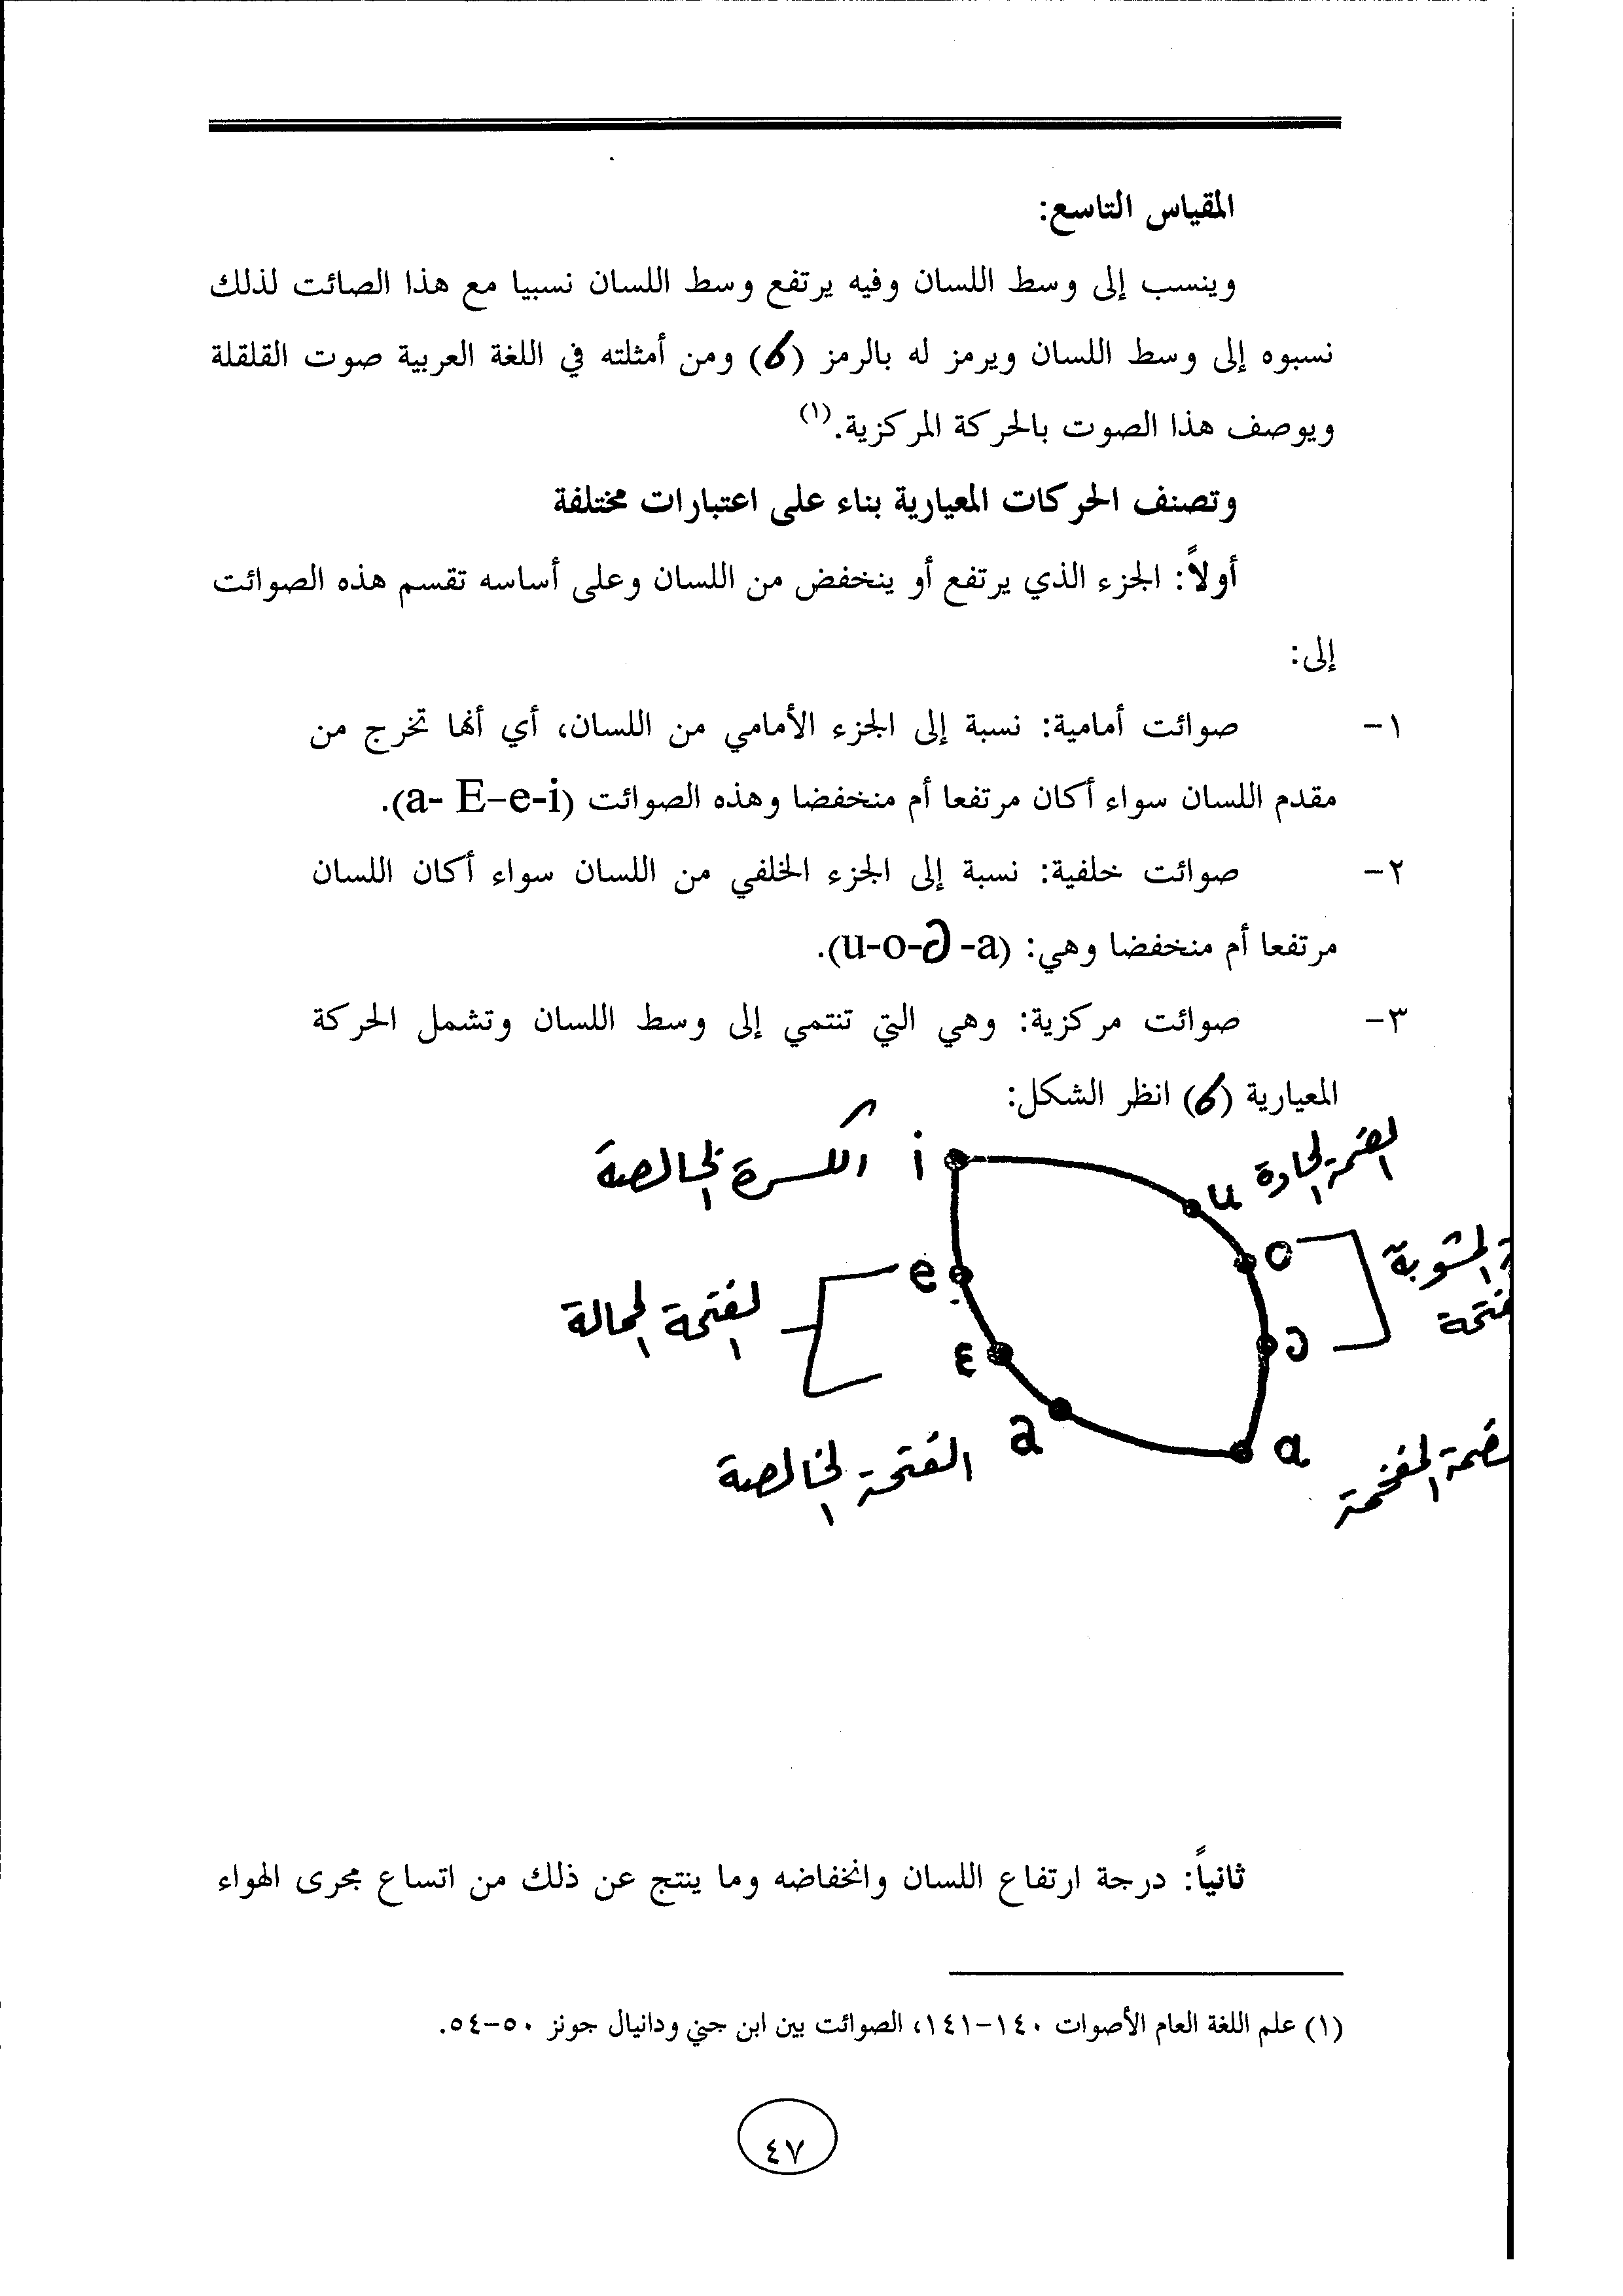 المقياس التاسع:
وينسب إلى وسط اللسان وفيه يرتفع وسط اللسان نسبيا مع هذا الصائت لذلك
نسبوه إلى وسط اللسان ويرمز له بالرمز () ومن أمثلته في اللغة العربية صوت القلقلة
ويوصف هذا الصوت بالحركة المركزية.(١)
وتصنف الحركات المعيارية بناء على اعتبارات مختلفة
أولاً: الجزء الذي يرتفع أو ينخفض من اللسان وعلى أساسه تقسم هذه الصوائت
إلى:
١- صوائت أمامية: نسبة إلى الجزء الأمامي من اللسان، أي أنها تخرج من
مقدم اللسان سواء أكان مرتفعا أم منخفضا وهذه الصوائت (a- E–e-i).
٢- صوائت خلفية: نسبة إلى الجزء الخلفي من اللسان سواء أكان اللسان
مرتفعا أم منخفضا وهي: (u-o- -a).
٣- صوائت مركزية: وهي التي تنتمي إلى وسط اللسان وتشمل الحركة
المعيارية () انظر الشكل:
الضمة الحادة
u
i
الكسرة الخالصة
المشوبة
o
e
الفتحة الممالة
ɔ
ε
a
الفتحة الخالصة
المفخمة
a
ثانياً: درجة ارتفاع اللسان وانخفاضه وما ينتج عن ذلك من اتساع مجرى الهواء
(١) علم اللغة العام الأصوات ١٤٠-١٤١، الصوائت بين ابن جني ودانيال جونز ٥٠-٥٤.
٤٧